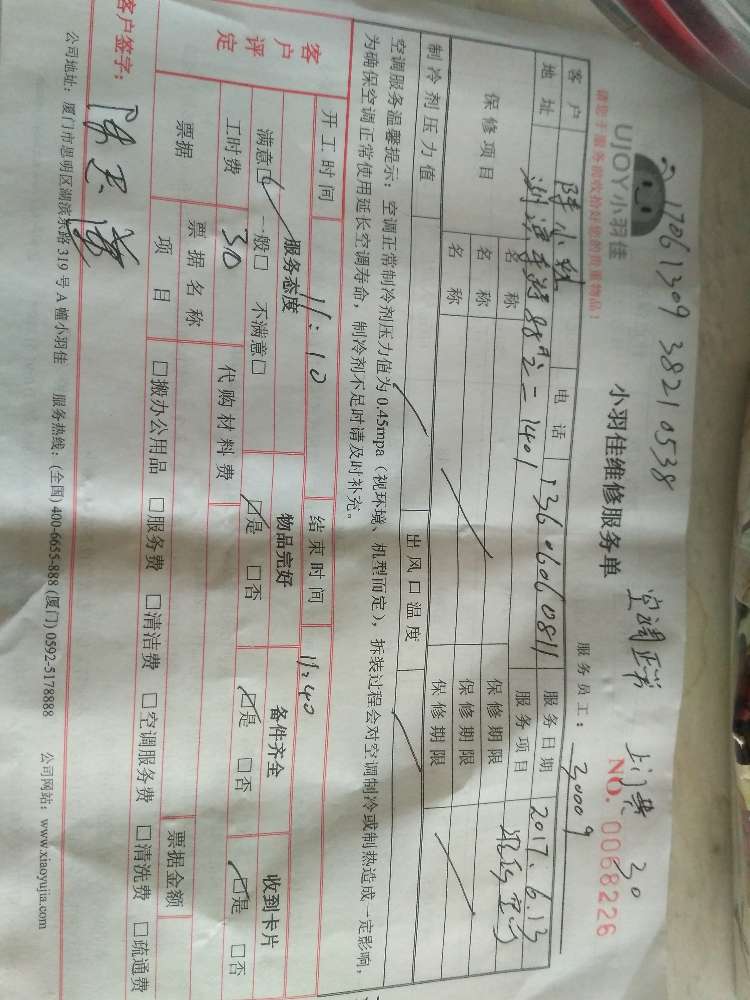 17061309 38210538
空调正常 上门费 30
UJOY 小羽佳
请您于服务前收拾好您的贵重物品！
小羽佳维修服务单
NO. 0068226
服务员工： 30009
客户 陈小姐 电话 13606060811 服务日期 2017.6.13
地址 88 之二 1401 服务项目
保修项目 名称 保修期限
名称 保修期限
名称 保修期限
制冷剂压力值 出风口温度
空调服务温馨提示：空调正常制冷剂压力值为 0.45mpa（视环境、机型而定），拆装过程会对空调制冷或制热造成一定影响，
为确保空调正常使用延长空调寿命，制冷剂不足时请及时补充。
开工时间 11:10 结束时间 11:40
客户评定 服务态度 物品完好 备件齐全 收到卡片
满意☑ 一般□ 不满意□ ☑是 □否 ☑是 □否 ☑是 □否
工时费 30 代购材料费
票据 票据名称 票据金额
项目 □搬办公用品 □服务费 □清洁费 □空调服务费 □清洗费 □疏通费
客户签字：
公司地址：厦门市思明区湖滨东路 319 号 A 幢小羽佳 服务热线：(全国) 400-6655-888 (厦门) 0592-5178888 公司网站：www.xiaoyujia.com